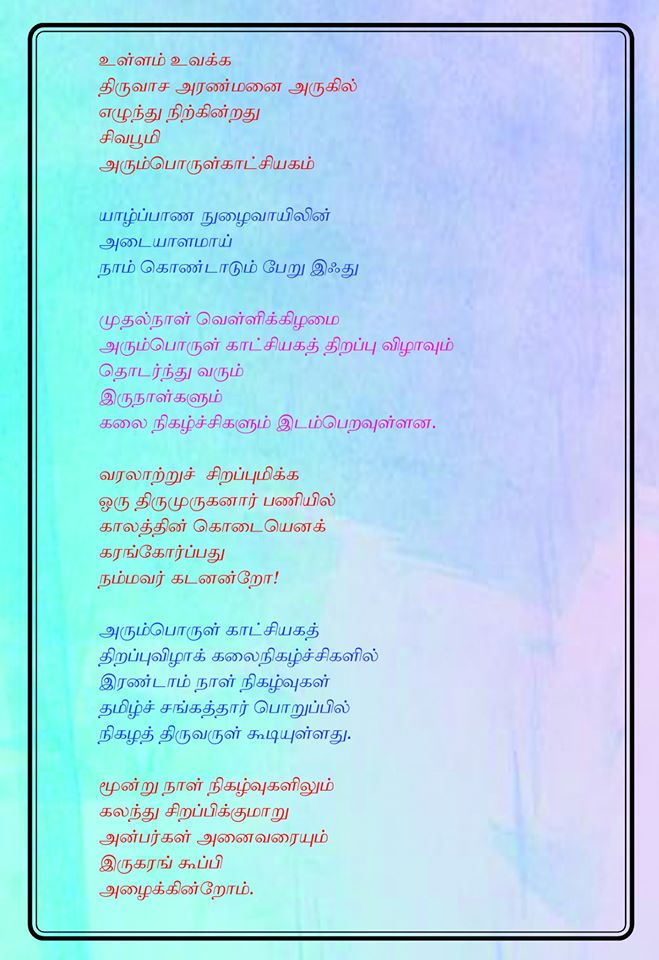 உள்ளம் உவக்க
திருவாச அரண்மனை அருகில்
எழுந்து நிற்கின்றது
சிவபூமி
அரும்பொருள்காட்சியகம்
யாழ்ப்பாண நுழைவாயிலின்
அடையாளமாய்
நாம் கொண்டாடும் பேறு இஃது
முதல்நாள் வெள்ளிக்கிழமை
அரும்பொருள் காட்சியகத் திறப்பு விழாவும்
தொடர்ந்து வரும்
இருநாள்களும்
கலை நிகழ்ச்சிகளும் இடம்பெறவுள்ளன.
வரலாற்றுச் சிறப்புமிக்க
ஒரு திருமுருகனார் பணியில்
காலத்தின் கொடையெனக்
கரங்கோர்ப்பது
நம்மவர் கடனன்றோ!
அரும்பொருள் காட்சியகத்
திறப்புவிழாக் கலைநிகழ்ச்சிகளில்
இரண்டாம் நாள் நிகழ்வுகள்
தமிழ்ச் சங்கத்தார் பொறுப்பில்
நிகழத் திருவருள் கூடியுள்ளது.
மூன்று நாள் நிகழ்வுகளிலும்
கலந்து சிறப்பிக்குமாறு
அன்பர்கள் அனைவரையும்
இருகரங் கூப்பி
அழைக்கின்றோம்.